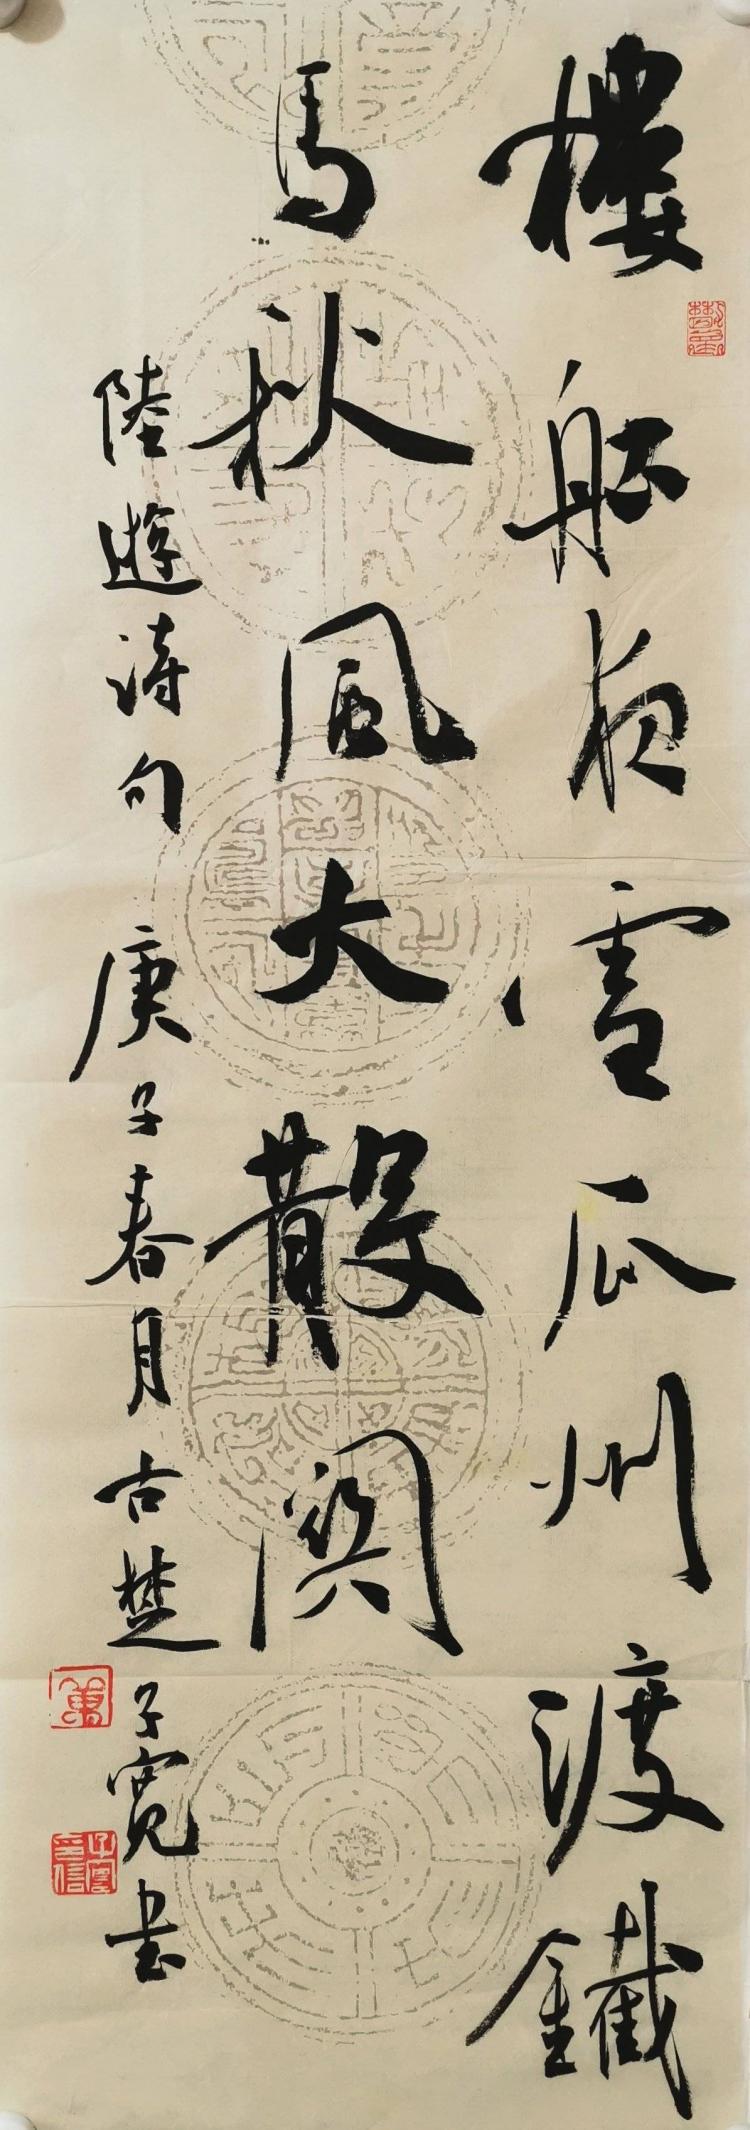 樓船夜雪瓜州渡鐵
馬秋風大散関
陸遊詩句 庚子春月古楚子寬书